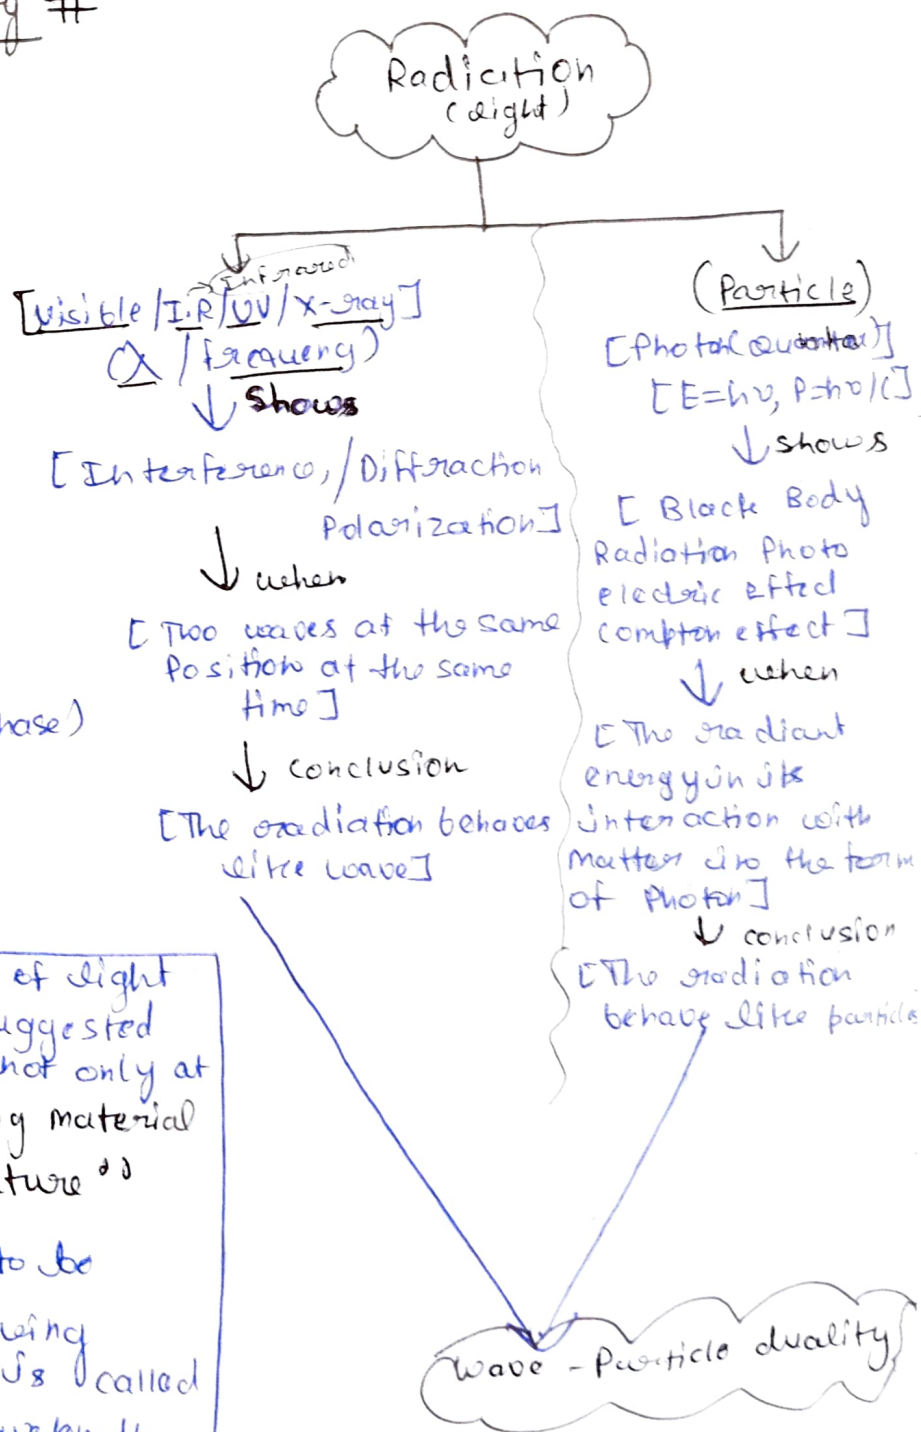 y #
Radiation
(light)
Infrared
[Visible/I.R/UV/X-ray]
(λ/frequency)
Shows
[Interference,/Diffraction
Polarization]
when
[Two waves at the same
Position at the same
time]
hase)
conclusion
[The radiation behaves
like wave]
(Particle)
[Photon(Quanta)]
[E=hν, P=hν/c]
shows
[Black Body
Radiation Photo
electric effect
compton effect]
when
[The radiant
energy in its
interaction with
Matter is in the form
of Photon]
conclusion
[The radiation
behave like particle
of light
uggested
not only at
g material
ture"
to be
wing
is called
Wave-Particle duality